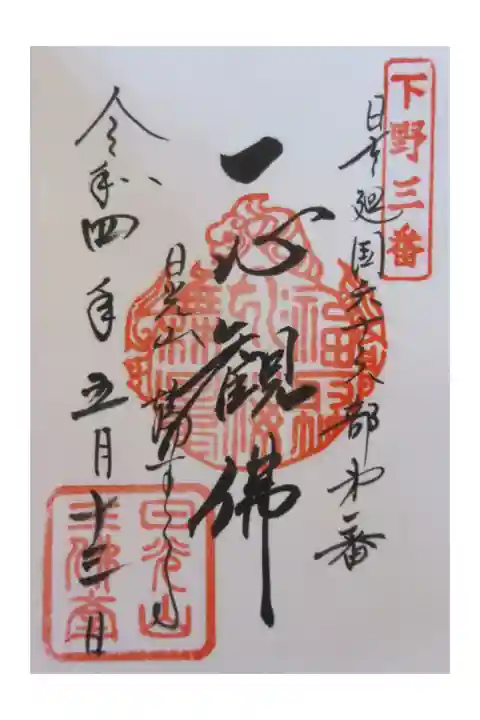 下野三番
日本廻国六十六部第一番
一心観佛
日光山
令和四年五月十三日
日光山
三佛堂